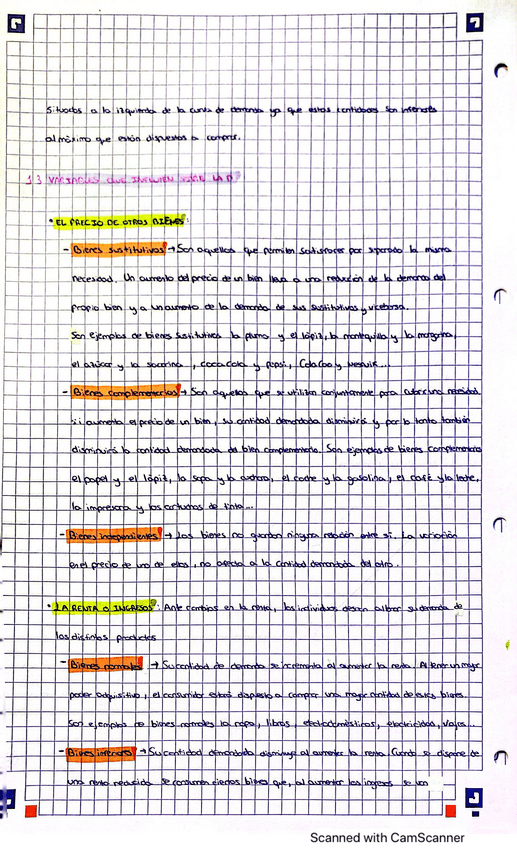 situadas a la izquierda de la curva de demanda ya que estas cantidades son inferiores
al máximo que están dispuestos a comprar.
1.3 VARIABLES QUE INFLUYEN SOBRE LA D
• EL PRECIO DE OTROS BIENES:
- Bienes sustitutivos → Son aquellos que permiten satisfacer por separado la misma
necesidad. Un aumento del precio de un bien lleva a una reducción de la demanda del
propio bien y a un aumento de la demanda de sus sustitutivos y viceversa.
Son ejemplos de bienes sustitutivos la pluma y el lápiz, la mantequilla y la margarina,
el azúcar y la sacarina, coca cola y pepsi, Cola Cao y Nesquik...
- Bienes complementarios → Son aquellos que se utilizan conjuntamente para cubrir una necesidad
si aumenta el precio de un bien, su cantidad demandada disminuirá y por lo tanto también
disminuirá la cantidad demandada del bien complementario. Son ejemplos de bienes complementarios
el papel y el lápiz, la sopa y la cuchara, el coche y la gasolina, el café y la leche,
la impresora y los cartuchos de tinta...
- Bienes independientes → Los bienes no guardan ninguna relación entre sí. La variación
en el precio de uno de ellos, no afecta a la cantidad demandada del otro.
• LA RENTA O INGRESOS: Ante cambios en la renta, los individuos desean alterar su demanda de
los distintos productos
- Bienes normales → Su cantidad de demanda se incrementa al aumentar la renta. Al tener un mayor
poder adquisitivo, el consumidor estará dispuesto a comprar una mayor cantidad de estos bienes.
Son ejemplos de bienes normales la ropa, libros, electrodomésticos, electricidad, viajes...
- Bienes inferiores → Su cantidad demandada disminuye al aumentar la renta. Cuando se dispone de
una renta reducida se consumen ciertos bienes que, al aumentar los ingresos se van
Scanned with CamScanner